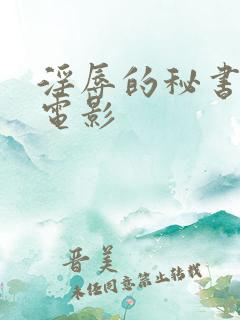 淫辱的秘書
電影
晋美
未经同意禁止转载